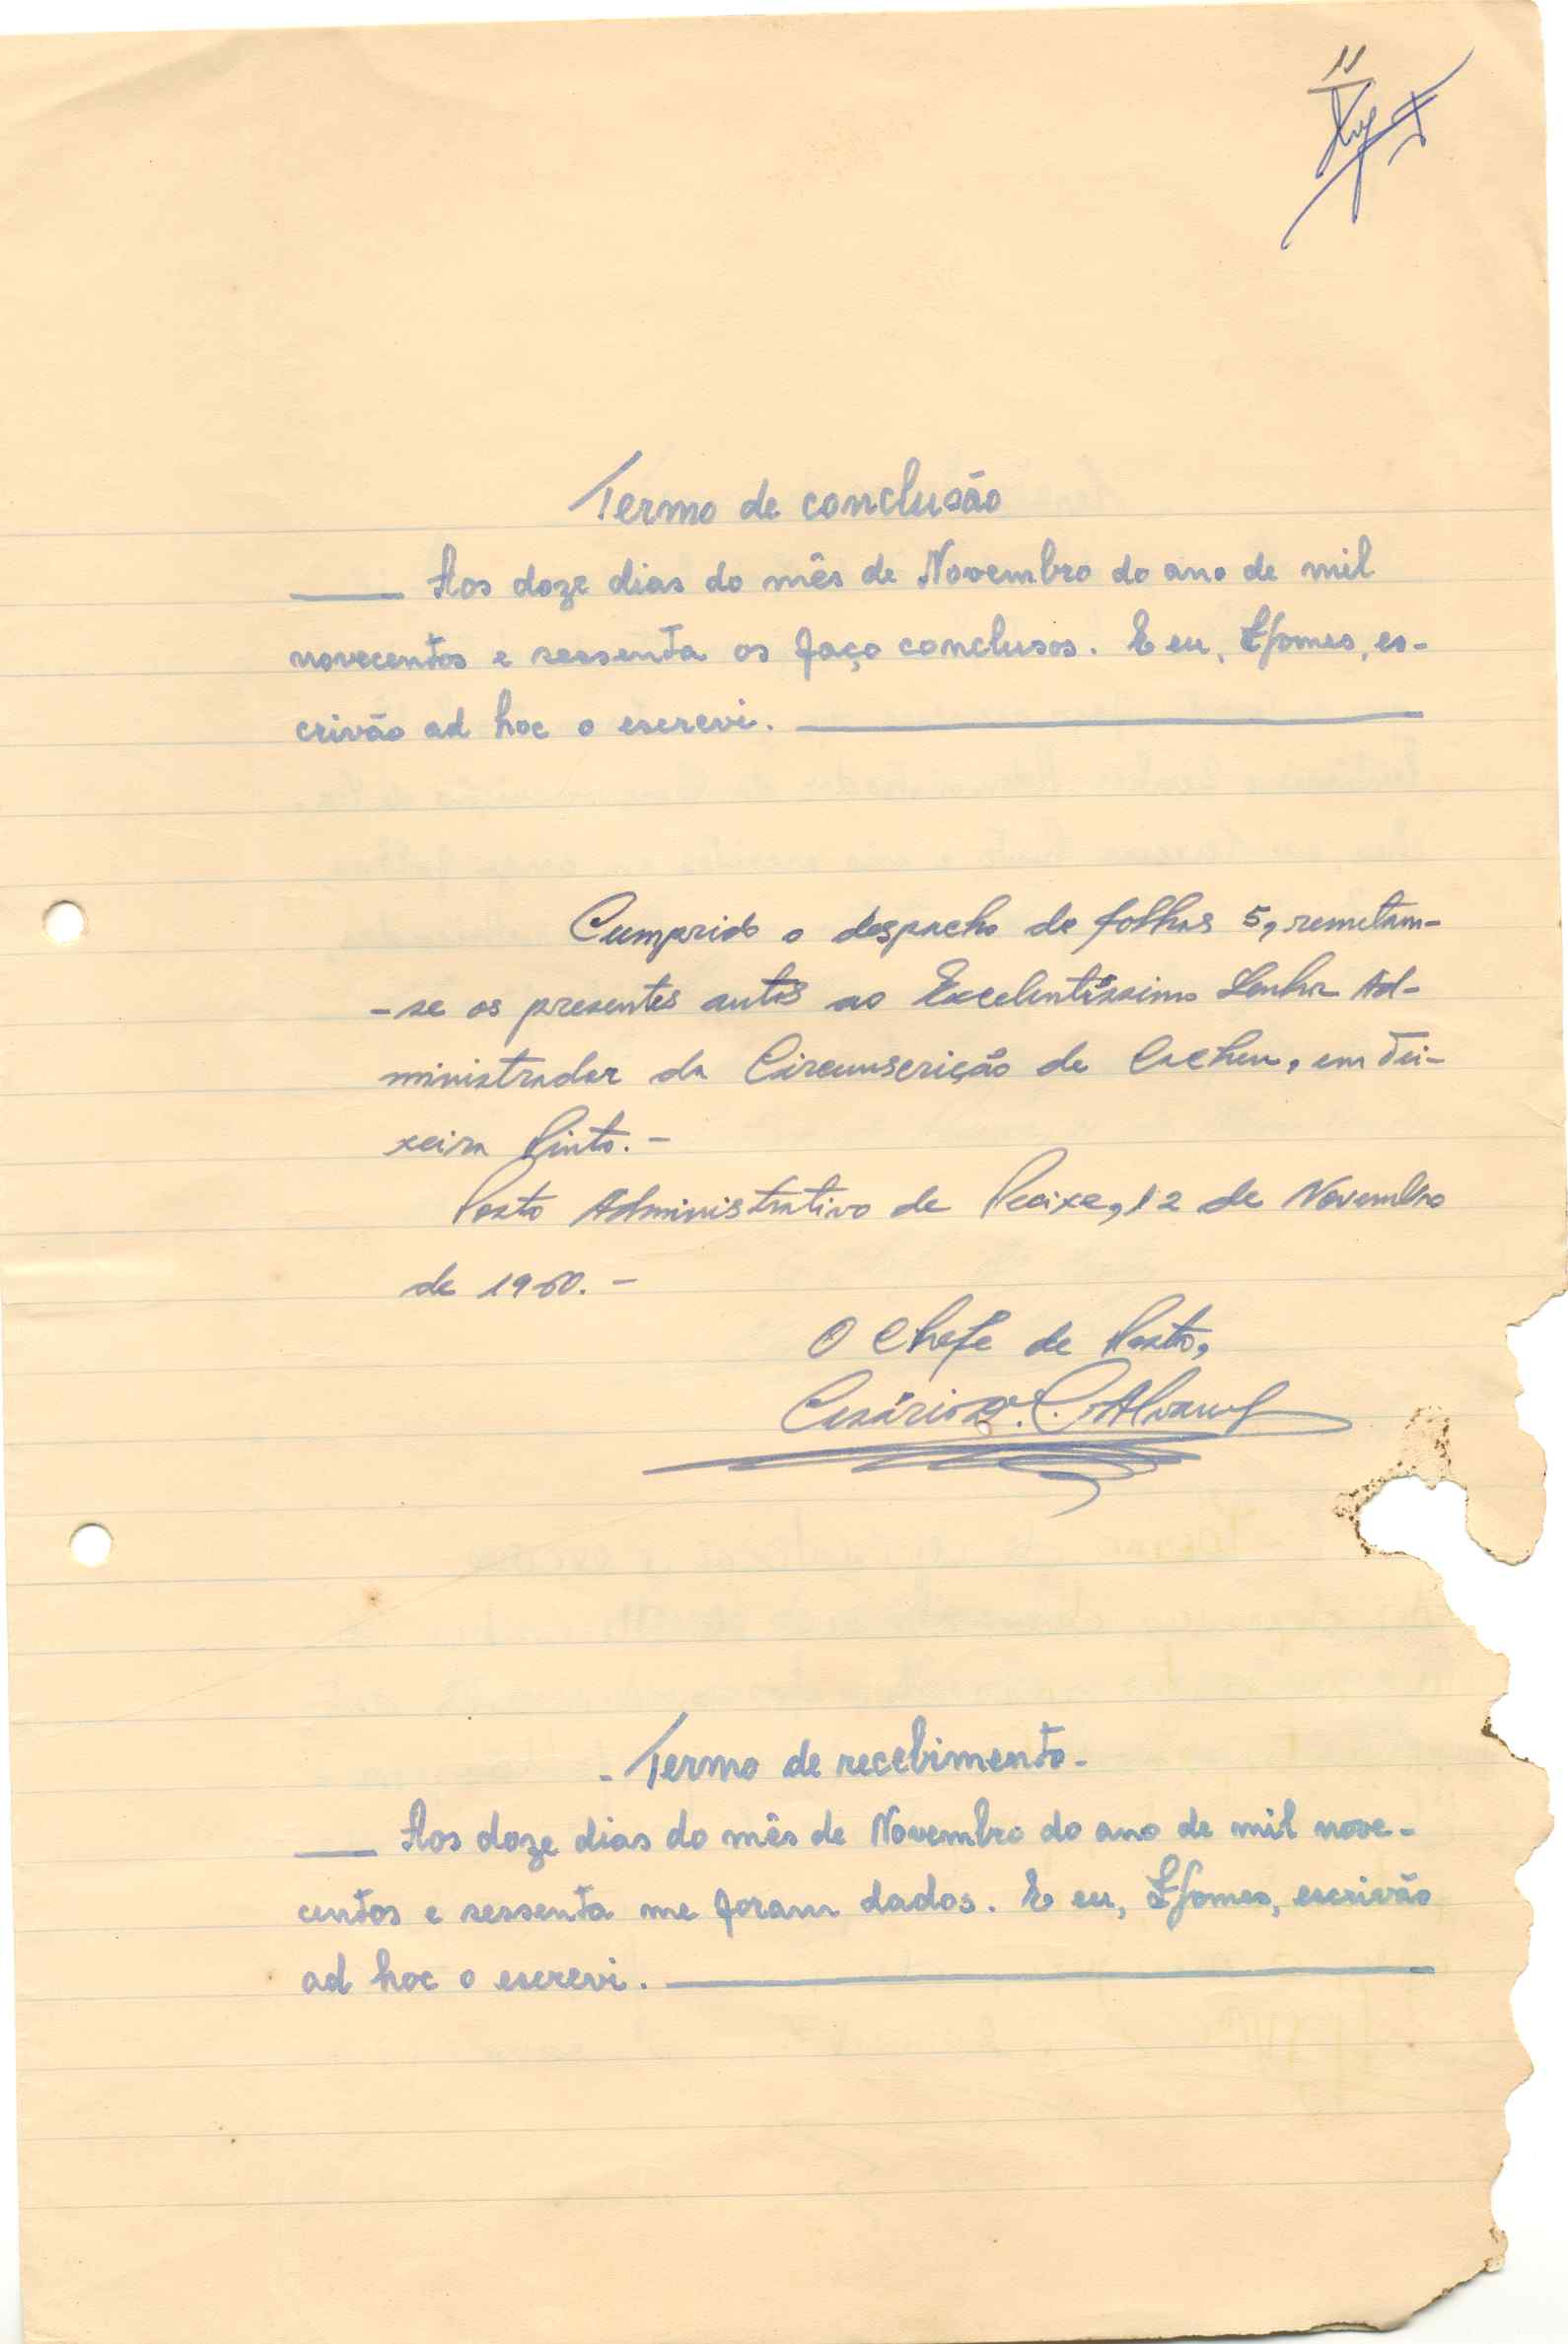 11
Termo de conclusão
Aos doze dias do mês de Novembro do ano de mil
novecentos e sessenta os faço conclusos. E eu, Gomes, es-
crivão ad hoc o escrevi.
Cumprido o despacho de folhas 5, remetam-
-se os presentes autos ao Excelentíssimo Senhor Ad-
ministrador da Circunscrição de Cacheu, em Tei-
xeira Pinto. -
Posto Administrativo de Pecixe, 12 de Novembro
de 1960. -
O Chefe de Posto,
Cesário
- Termo de recebimento -
Aos doze dias do mês de Novembro do ano de mil nove-
centos e sessenta me foram dados. E eu, Gomes, escrivão
ad hoc o escrevi.